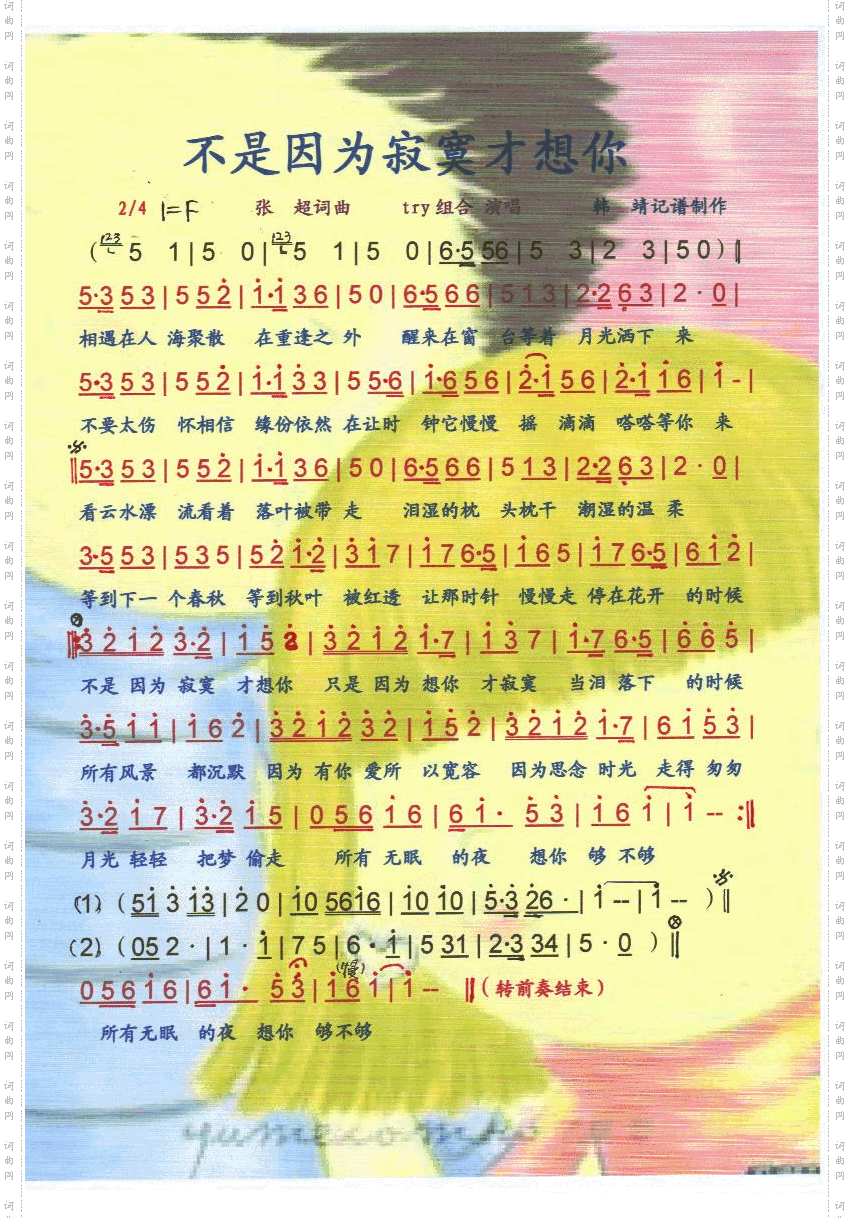 不是因为寂寞才想你
2/4 1=F 张 超词曲 try组合 演唱 韩 靖记谱制作
(123 5 1|5 0|123 5 1|5 0|6·5 56|5 3|2 3|5 0)‖
5·3 5 3|5 5 2|1·1 3 6|5 0|6·5 6 6|5 1 3|2·2 6 3|2 · 0|
相遇在人 海聚散 在重逢之 外 醒来在窗 台等着 月光洒下 来
5·3 5 3|5 5 2|1·1 3 3|5 5·6|1·6 5 6|2·1 5 6|2·1 1 6|1 -|
不要太伤 怀相信 缘份依然 在让时 钟它慢慢 摇 滴滴 嗒嗒等你 来
‖5·3 5 3|5 5 2|1·1 3 6|5 0|6·5 6 6|5 1 3|2·2 6 3|2 · 0|
看云水漂 流看着 落叶被带 走 泪湿的枕 头枕干 潮湿的温 柔
3·5 5 3|5 3 5|5 2 1·2|3 1 7|1 7 6·5|1 6 5|1 7 6·5|6 1 2|
等到下一 个春秋 等到秋叶 被红透 让那时针 慢慢走 停在花开 的时候
‖:3 2 1 2 3·2|1 5 2|3 2 1 2 1·7|1 3 7|1·7 6·5|6 6 5|
不是 因为 寂寞 才想你 只是 因为 想你 才寂寞 当泪 落下 的时候
3·5 1 1|1 6 2|3 2 1 2 3 2|1 5 2|3 2 1 2 1·7|6 1 5 3|
所有风景 都沉默 因为 有你 爱所 以宽容 因为思念 时光 走得 匆匆
3·2 1 7|3·2 1 5|0 5 6 1 6|6 1· 5 3|1 6 1|1 --:‖
月光 轻轻 把梦 偷走 所有 无眠 的夜 想你 够 不够
(1)(51 3 13|2 0|10 5616|10 10|5·3 26 ·|1 --|1 -- )‖
(2)(05 2 ·|1 · 1|7 5|6 · 1|5 31|2·3 34|5 · 0 )‖
(慢)
0 5 6 1 6|6 1· 5 3|1 6 1|1 -- ‖(转前奏结束)
所有无眠 的夜 想你 够不够
词曲网